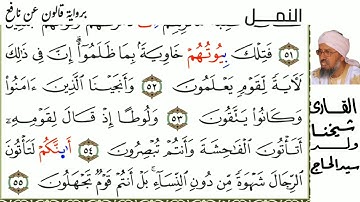 النمل
برواية قالون عن نافع
٥١ فَتِلْكَ بِيُوتُهُمْ خَاوِيَةَۢ بِمَا ظَلَمُوٓاْۖ إِنَّ فِے ذَٰلِكَ
لَأٓيَةٗ لِّقَوْمٖ يَعْلَمُونَ ٥٢ وَأَنجَيْنَا اَ۬لذِينَ ءَامَنُواْ
وَكَانُواْ يَتَّقُونَ ٥٣ وَلُوطاً إِذْ قَالَ لِقَوْمِهِۦٓ
أَتَأْتُونَ اَ۬لْفَٰحِشَةَ وَأَنتُمْ تُبْصِرُونَ ٥٤ أَٰى۪نَّكُمْ لَتَأْتُونَ
اَ۬لرِّجَالَ شَهْوَةٗ مِّن دُونِ اِ۬لنِّسَآءِۖ بَلْ أَنتُمْ قَوْمٞ تَجْهَلُونَ ٥٥
القارئ
شيخنا
ولد
سيدالحاج